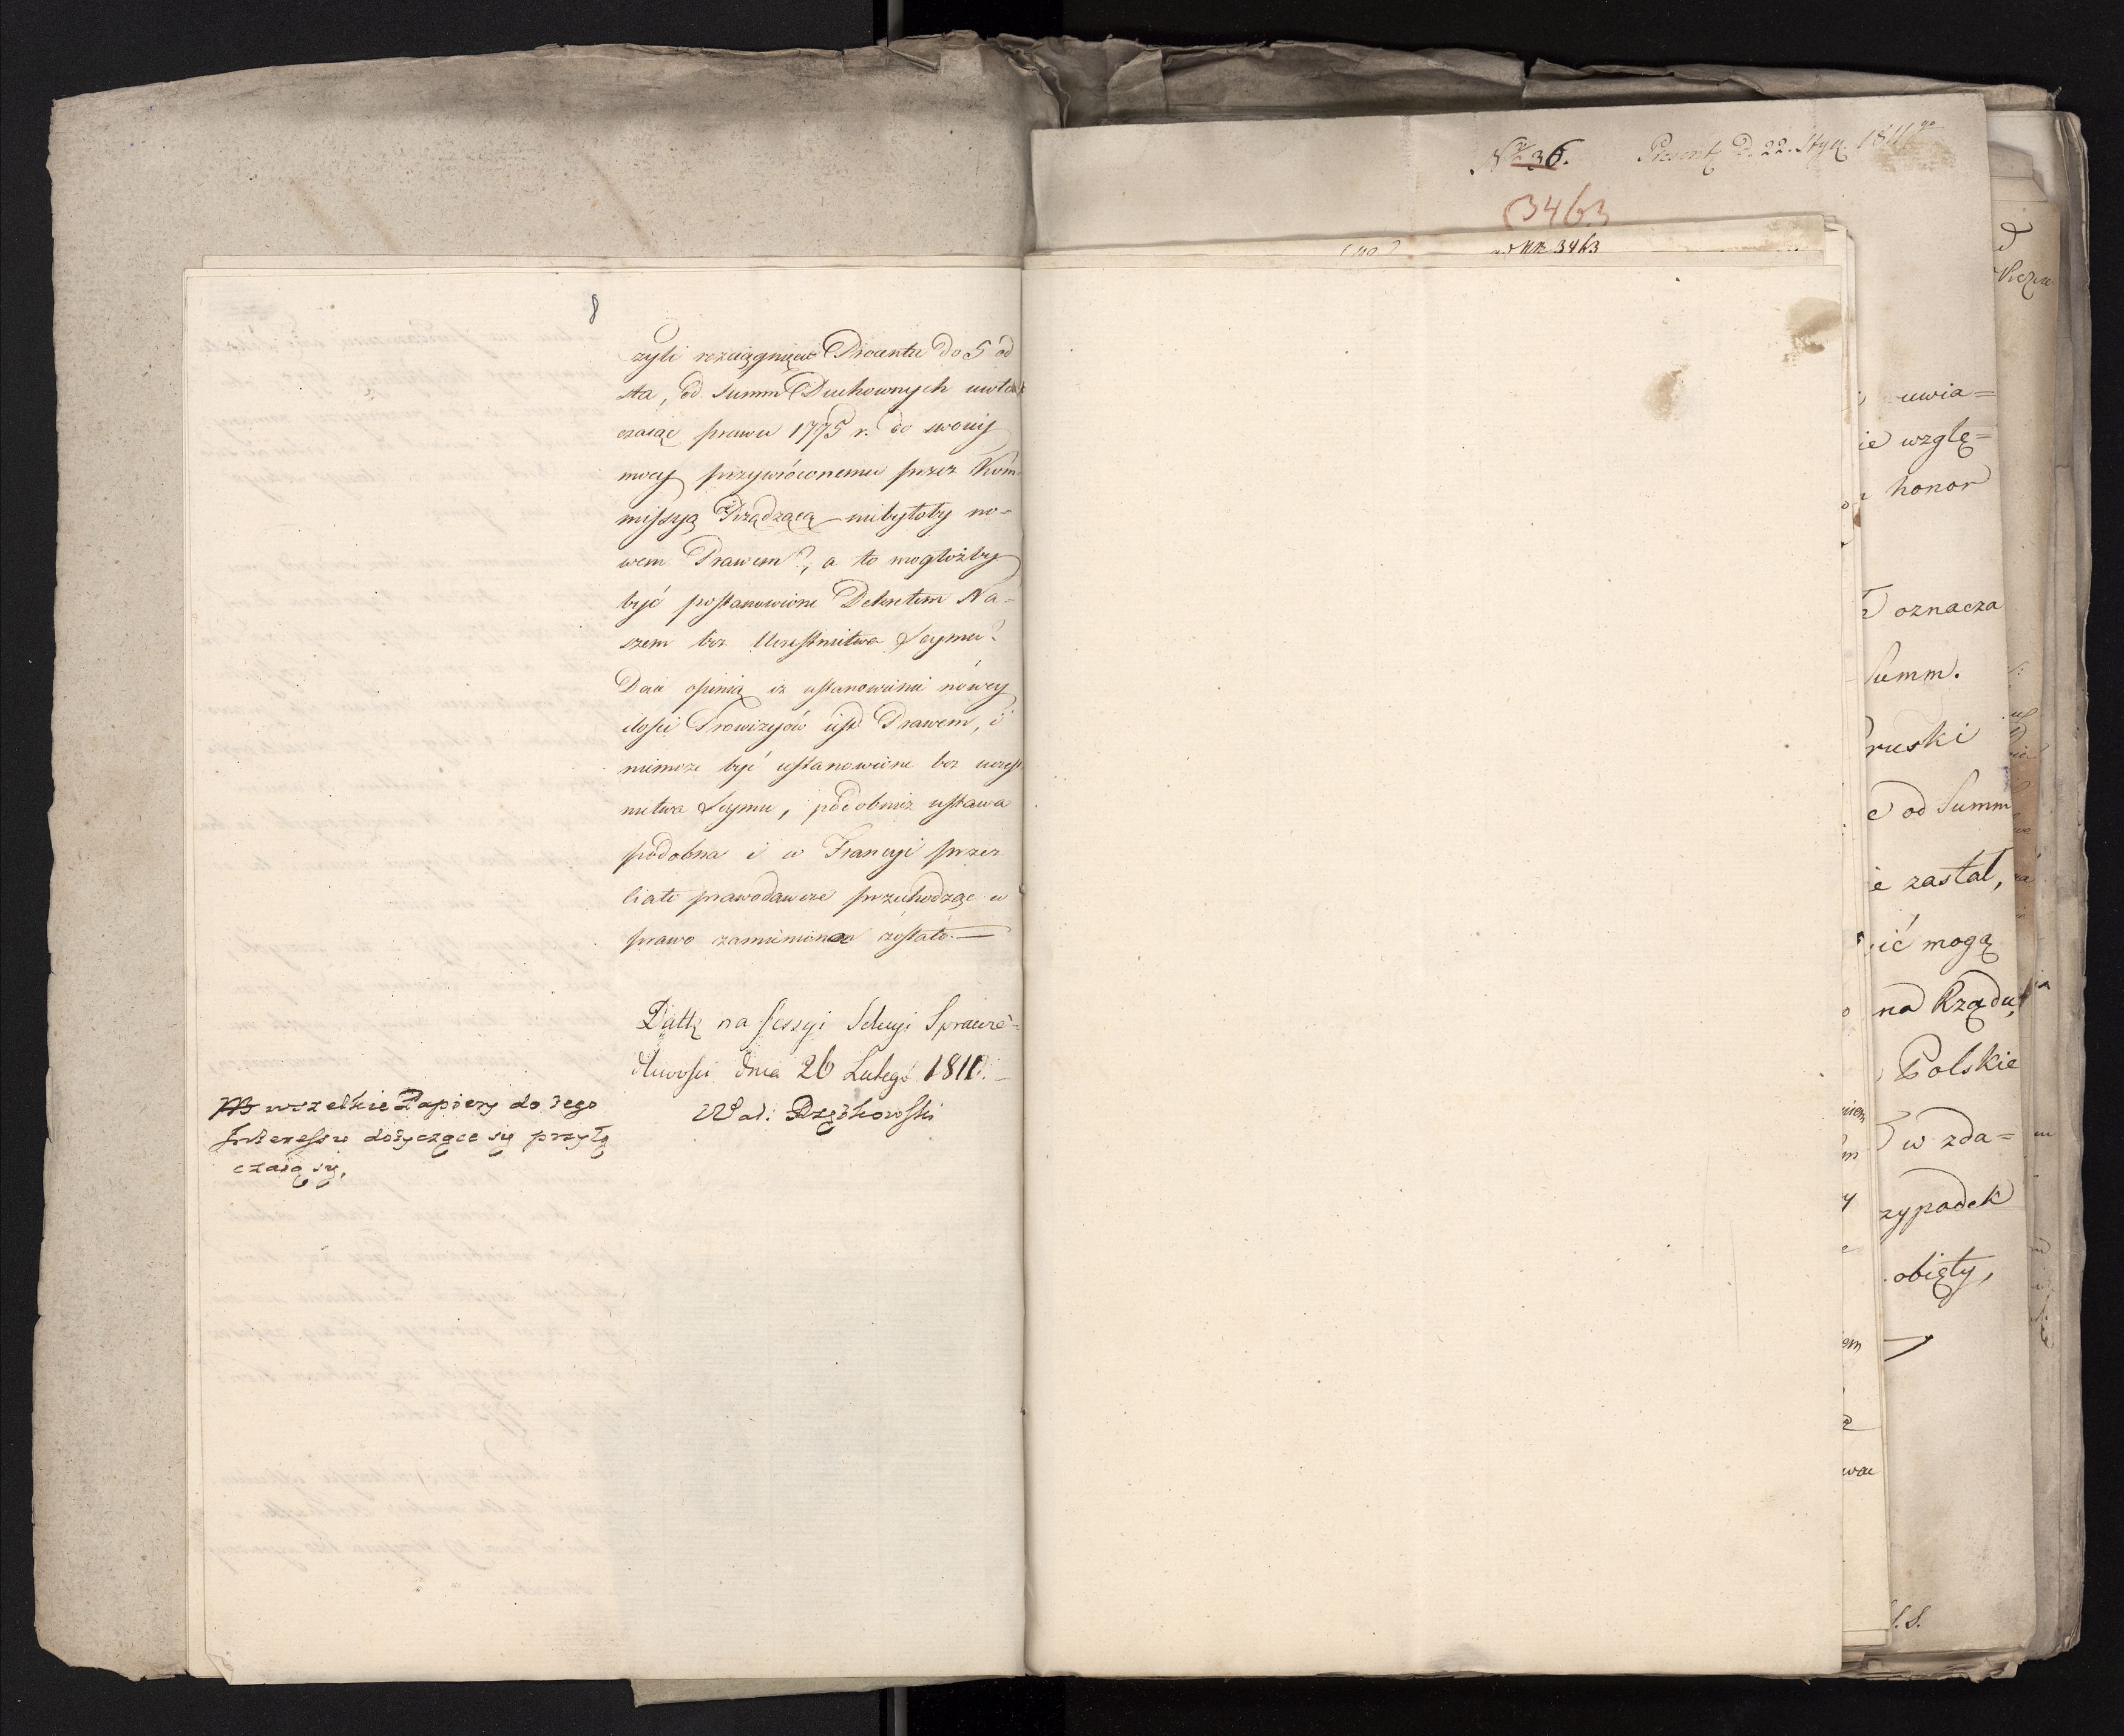 8
czyli rozciągnięcie Procentu do 5 od
sta, od Summ Duchownych uwła
czaiąc prawu 1775 r. do swoiey
mocy przywróconemu przez Kom
missyą Rządzącą niebyłoby no-
wem Prawem?, a to mogłożby
być postanowione Dekretem Na-
szem bez Uczestnictwa Seymu?
Daie opinią iż ustanowienie nowey
ilości Prowizyów iest Prawem, i
niemoże być ustanowione bez uczest
nictwa Seymu, podobnież ustawa
podobna i w Francyi przez
ciało prawodawcze przechodząc w
prawo zamienione zostało.
Datt na Sessyi Sekcyi Sprawie-
dliwości dnia 26 Lutego 1810.
Wal:
NB wszelkie Papiery do tego
Interessu dotyczące się przyłą
czaią się.
Nr 36. Present d. 22. Stycz. 1811go
3463
ad Nr 3463
uwia=
ie wzglę=
honor
oznacza
Summ.
Pruski
od Summ
ie zastał,
ić mogą
na Rządu,
Polskie
w zda=
zypadek
obięty,